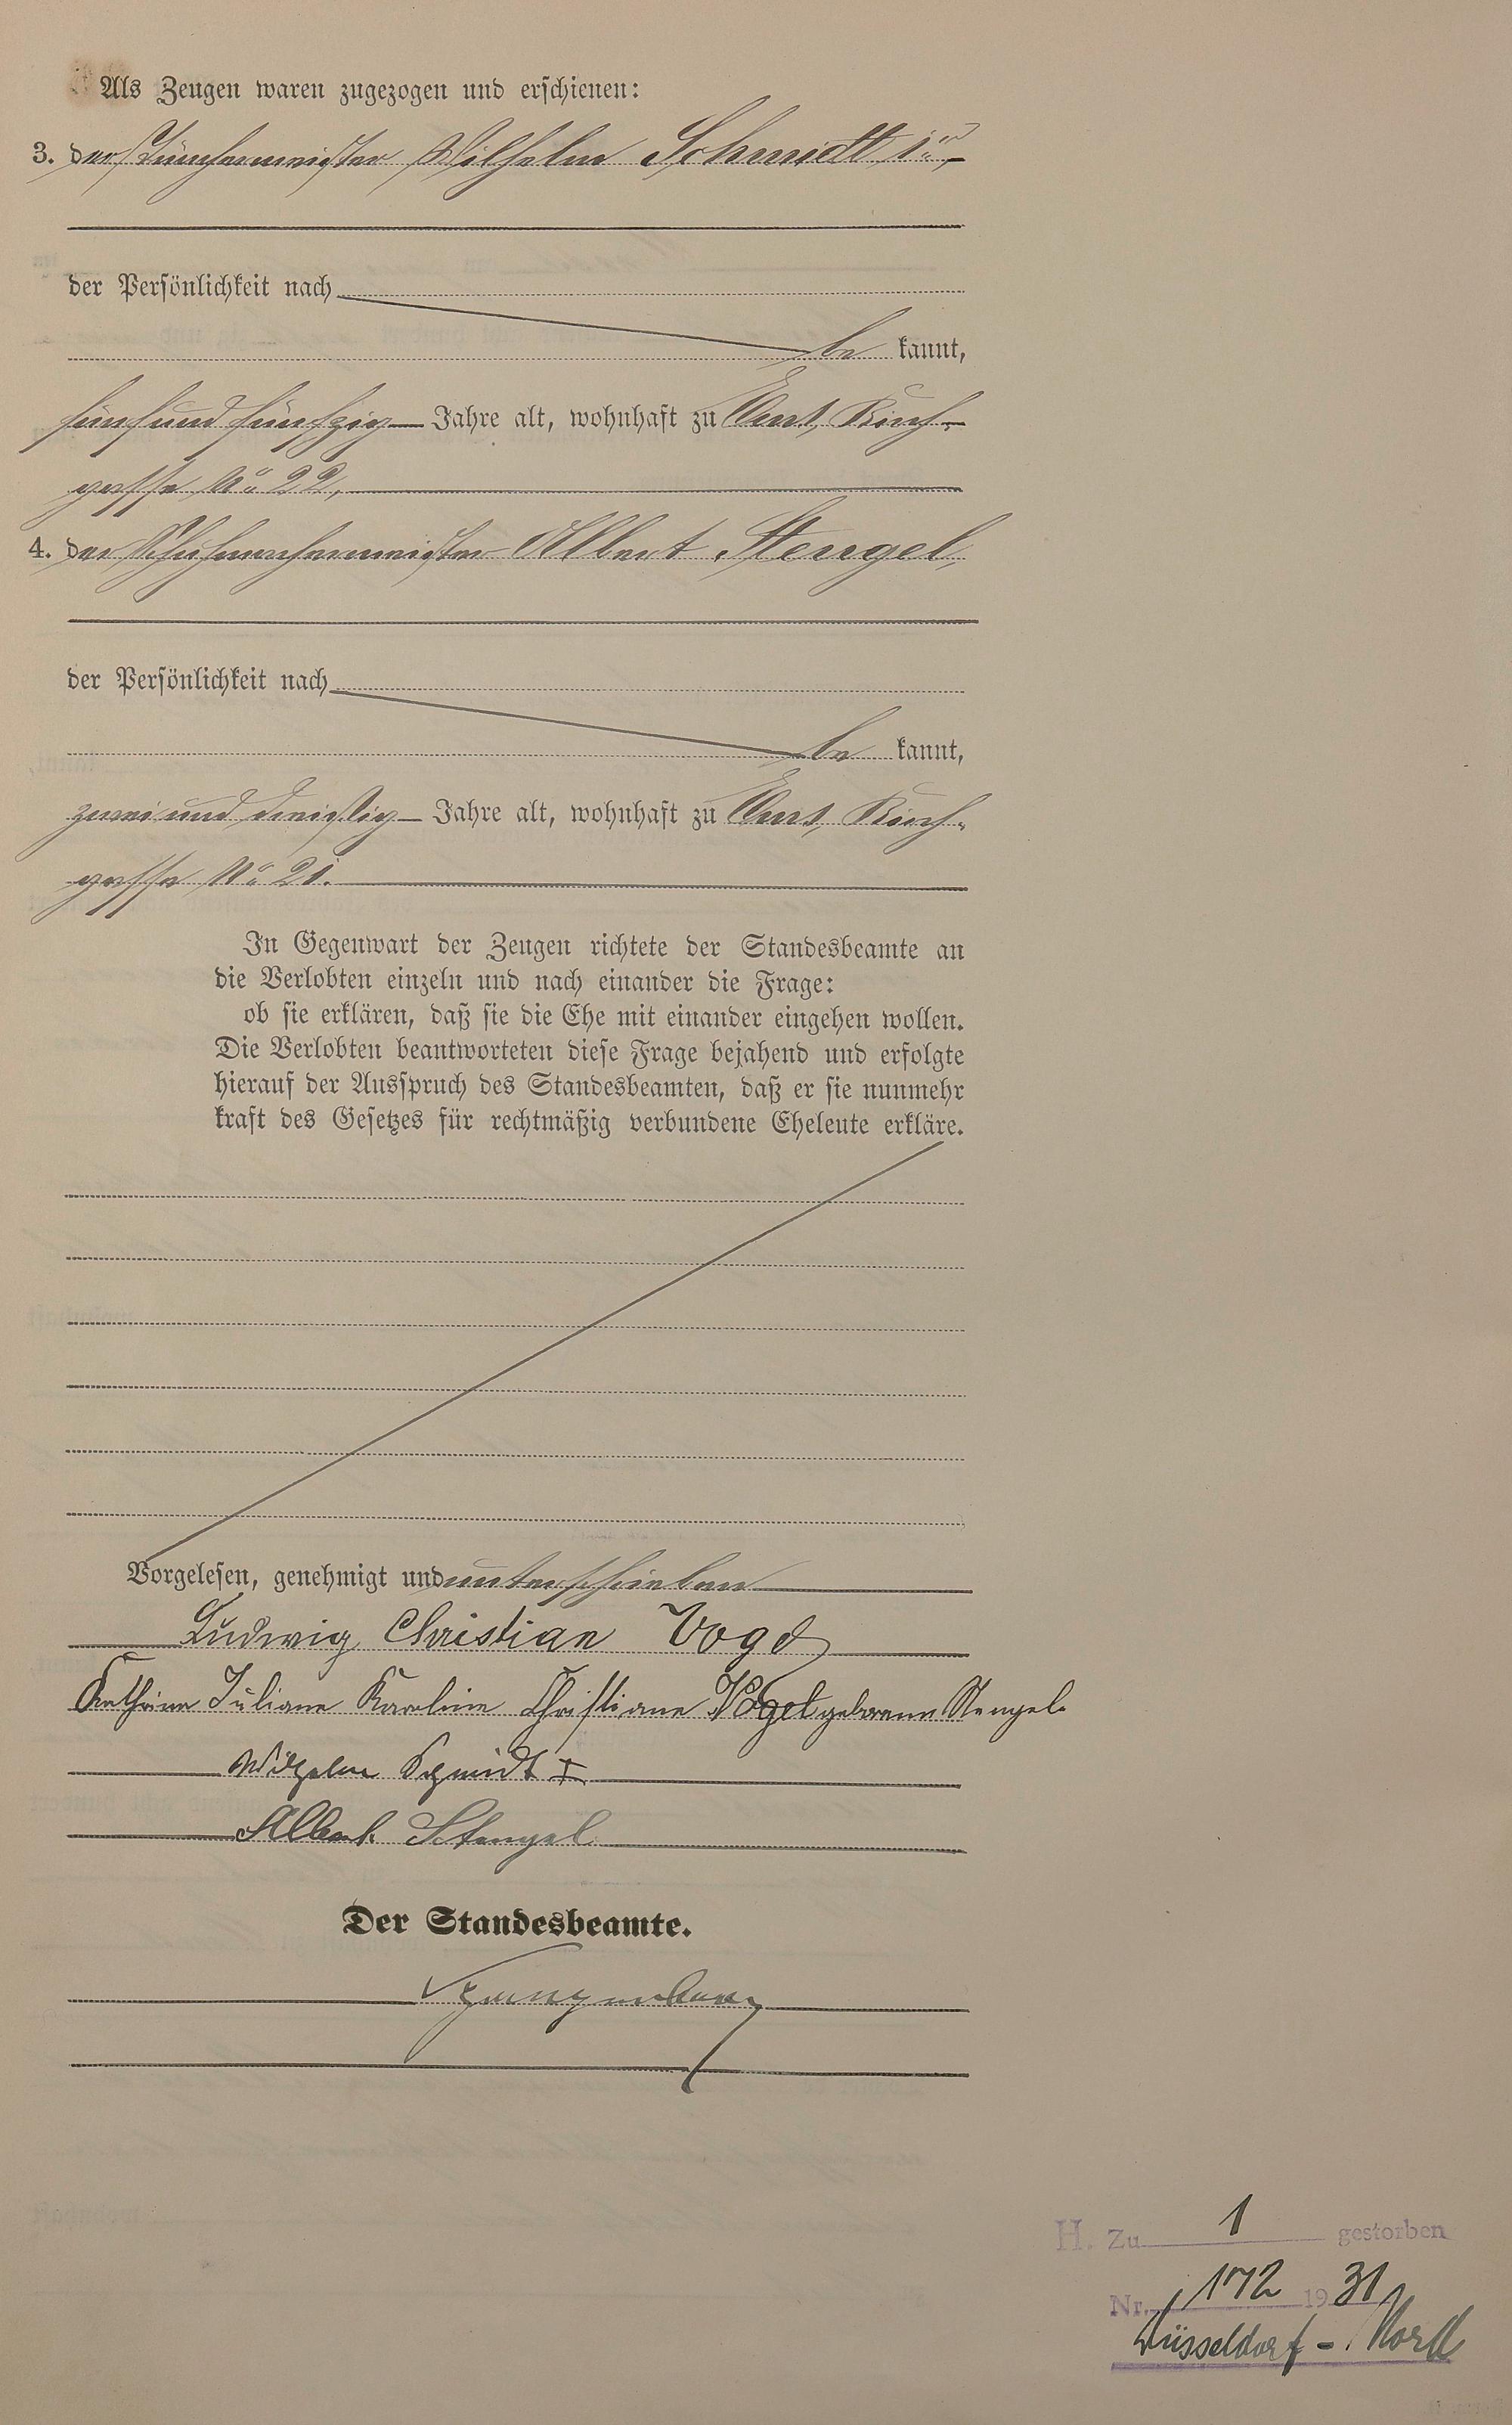 Als Zeugen waren zugezogen und erschienen:
3. der Tünchermeister Wilhelm Schmidt 1ter,
der Persönlichkeit nach
be kannt,
fünfundfünfzig Jahre alt, wohnhaft zu Ems, Kirch-
gasse No 22,
4. der Schuhmachermeister Albert Stengel,
der Persönlichkeit nach
be kannt,
zweiunddreißig Jahre alt, wohnhaft zu Ems, Kirch-
gasse No 21.
In Gegenwart der Zeugen richtete der Standesbeamte an
die Verlobten einzeln und nach einander die Frage:
ob sie erklären, daß sie die Ehe mit einander eingehen wollen.
Die Verlobten beantworteten diese Frage bejahend und erfolgte
hierauf der Ausspruch des Standesbeamten, daß er sie nunmehr
kraft des Gesetzes für rechtmäßig verbundene Eheleute erkläre.
Vorgelesen, genehmigt und unterschrieben
Ludwig Christian Vogel
Kathrina Juliane Karoline Christiane Vogel geborene Stengel.
Wilhelm Schmidt I
Albert Stengel
Der Standesbeamte.
H. Zu 1 gestorben
Nr. 172 1931
Düsseldorf - Nord